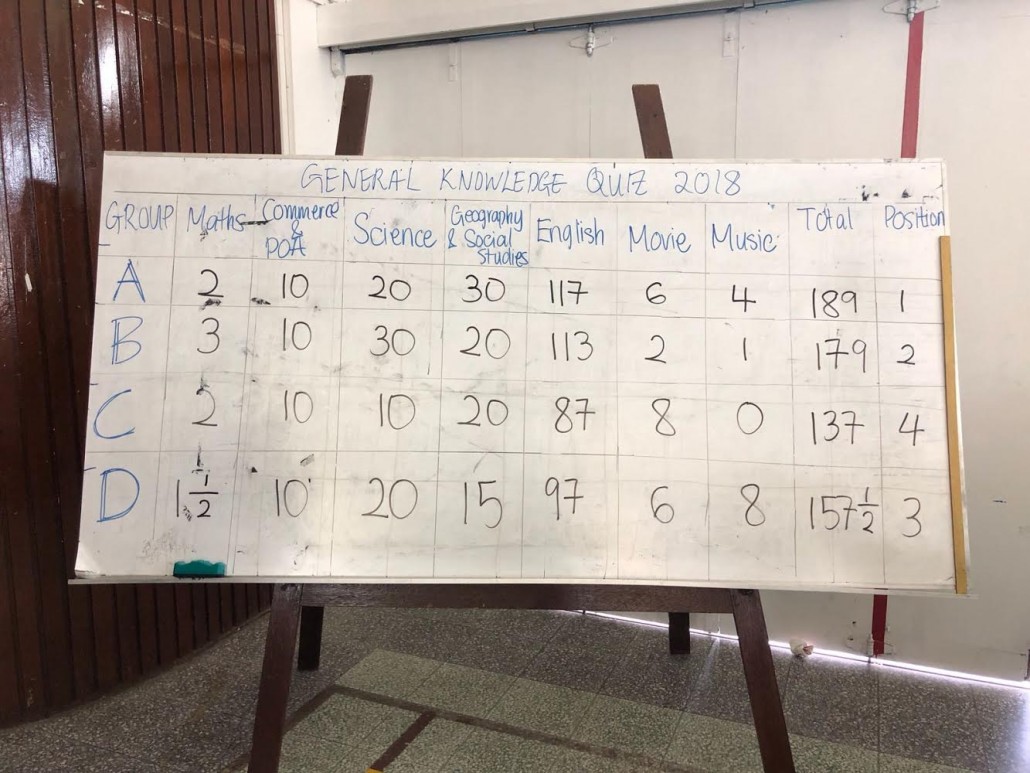 GENERAL KNOWLEDGE QUIZ 2018
GROUP Maths Commerce & POA Science Geography & Social Studies English Movie Music Total Position
A 2 10 20 30 117 6 4 189 1
B 3 10 30 20 113 2 1 179 2
C 2 10 10 20 87 8 0 137 4
D 1 1/2 10 20 15 97 6 8 157 1/2 3